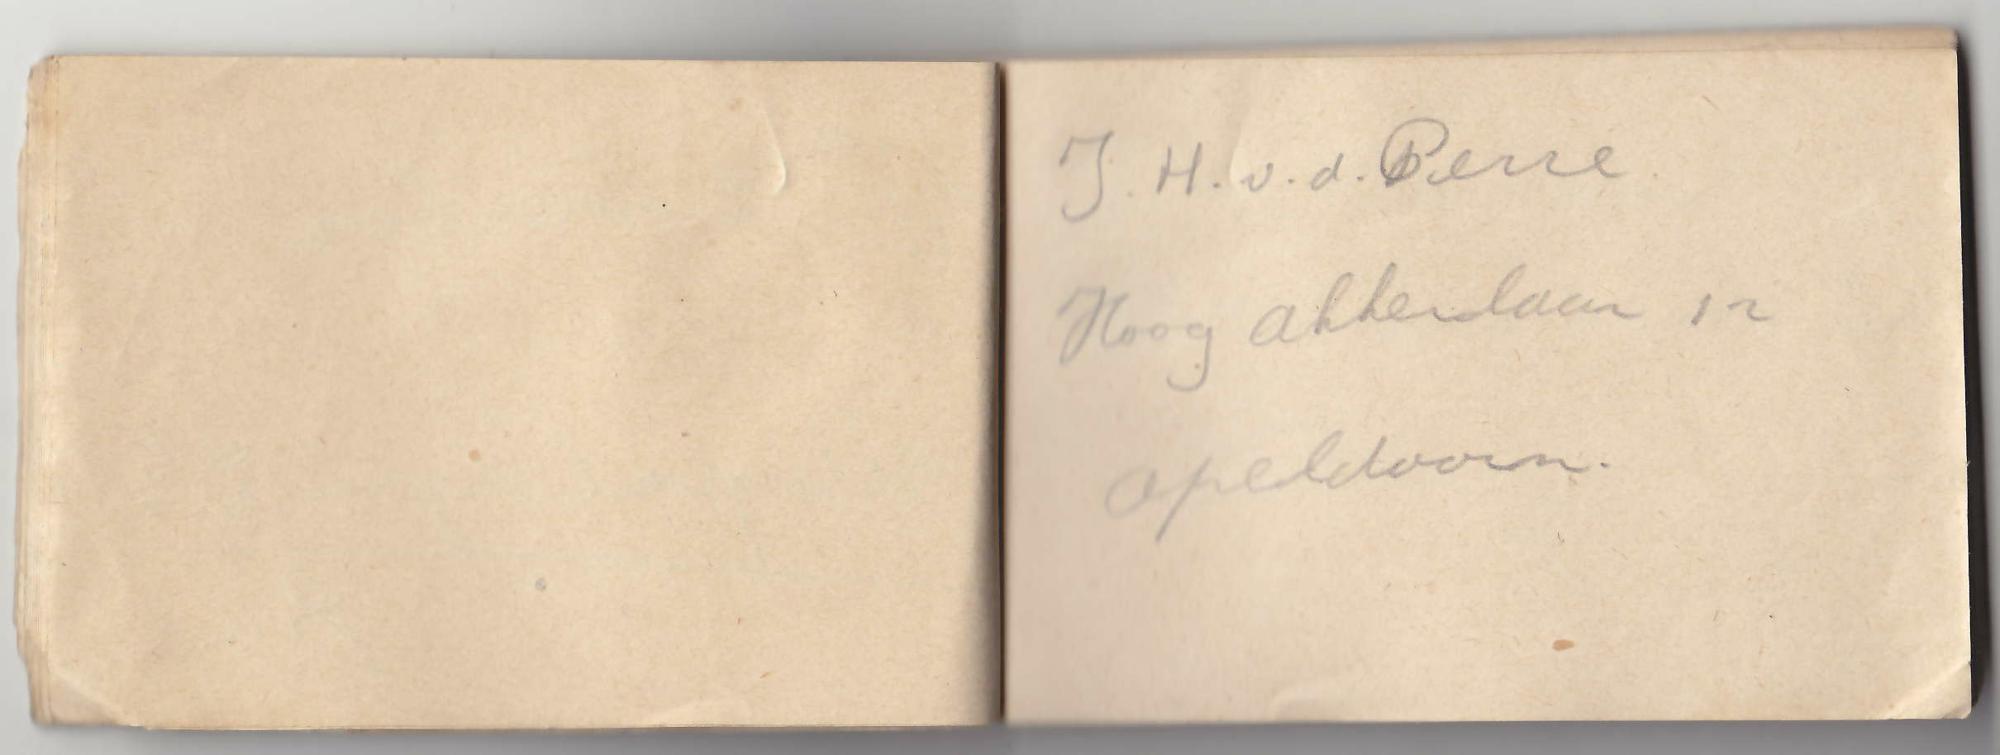 J. H. v. d. Perre.
Hoog akkerlaan 12
apeldoorn.